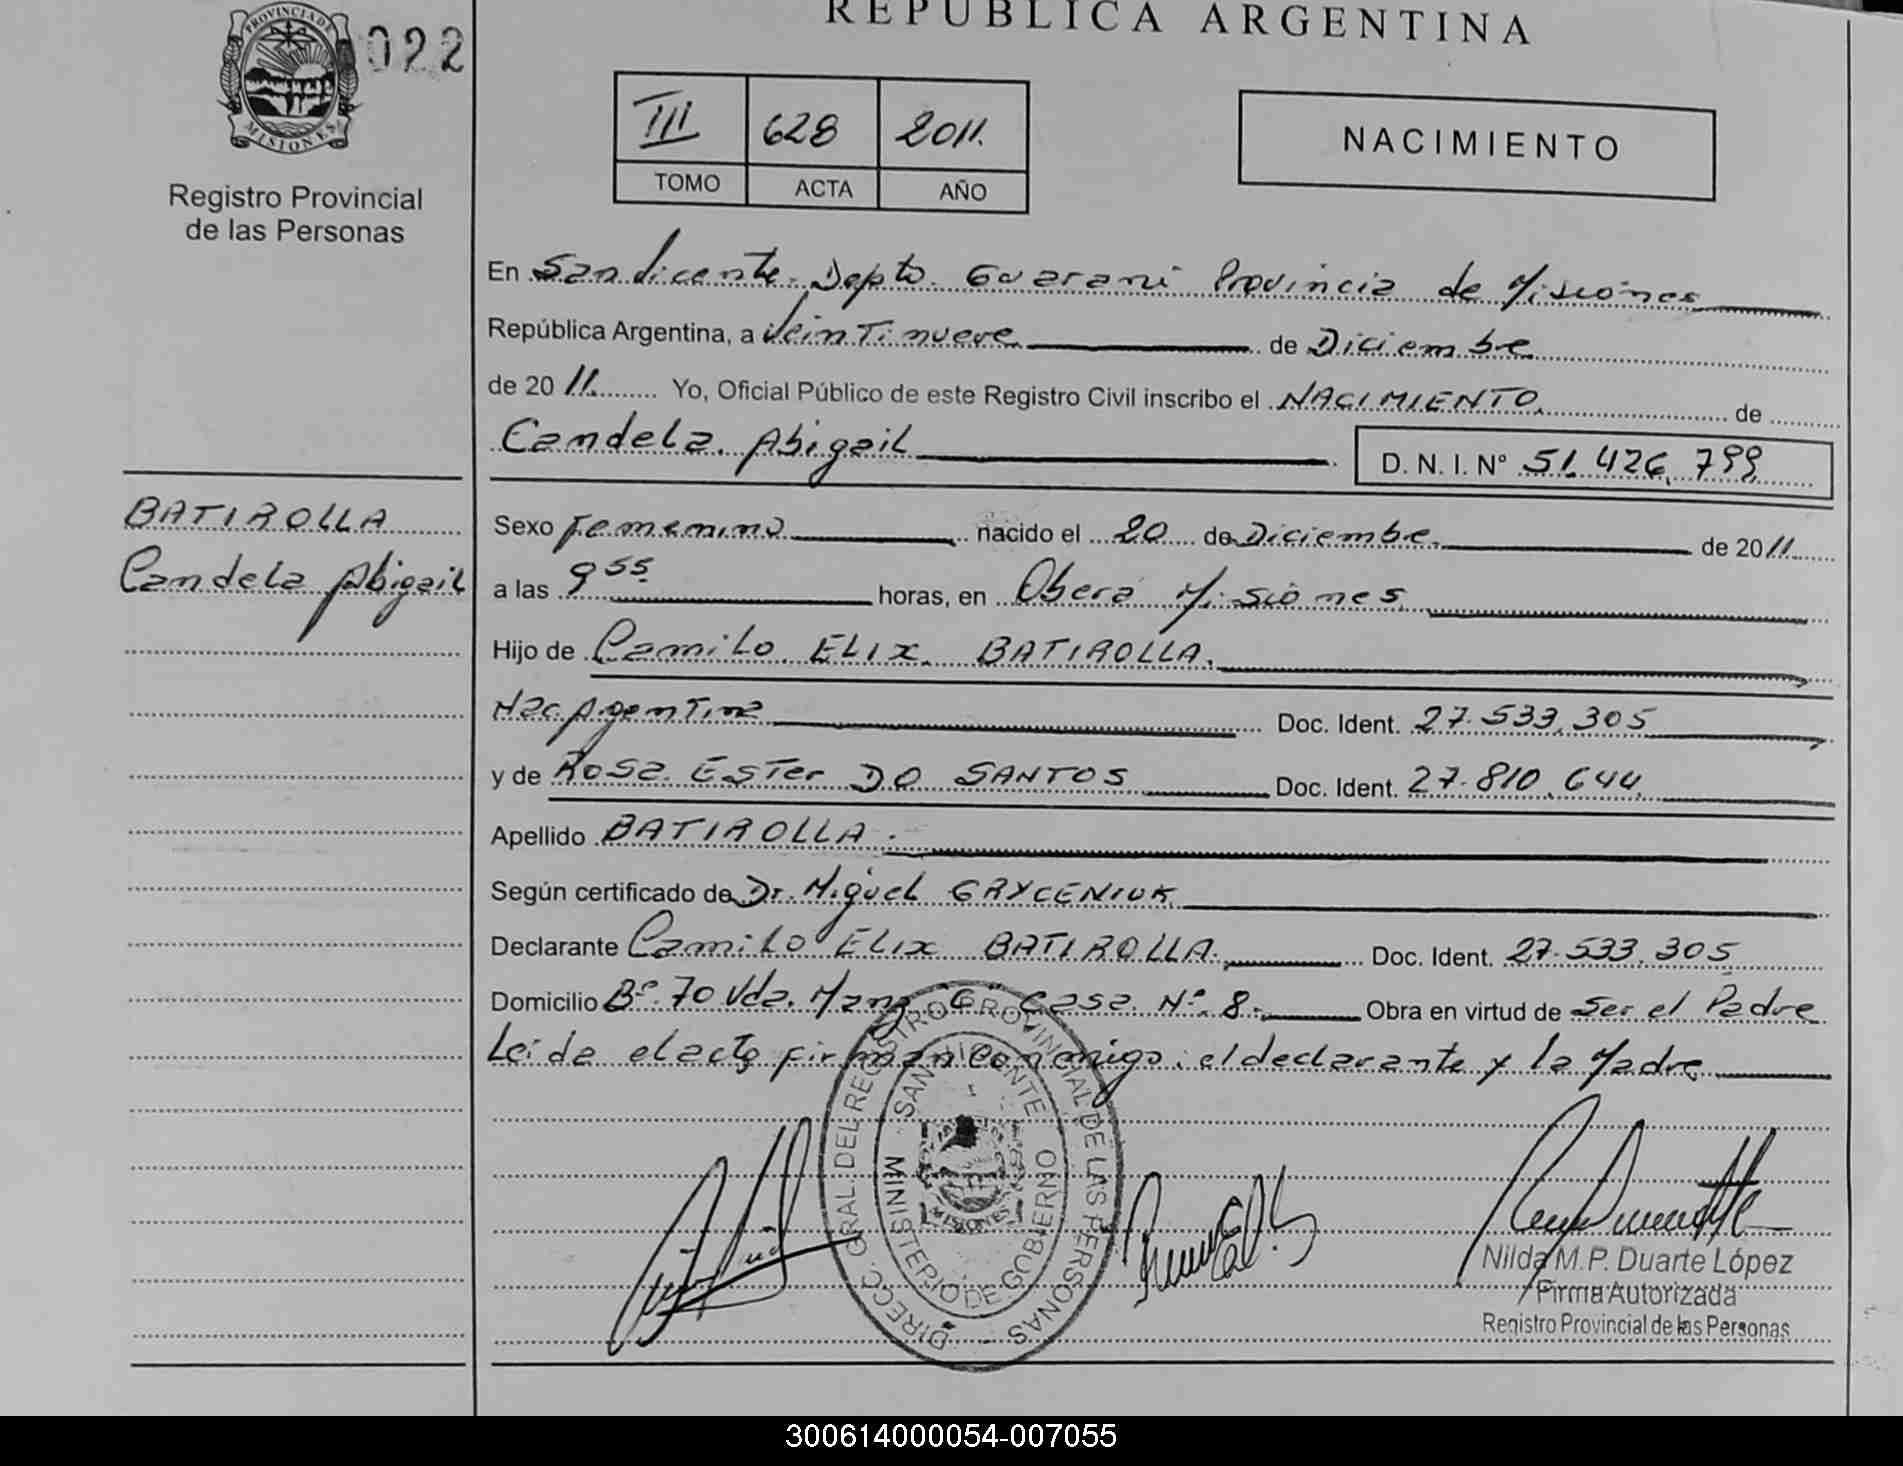 REPUBLICA ARGENTINA
PROVINCIA DE
MISIONES
022
Registro Provincial
de las Personas
III 628 2011.
TOMO ACTA AÑO
NACIMIENTO
En San Vicente. Depto. Guaraní Provincia de Misiones
República Argentina, a Veintinueve de Diciembre
de 2011. Yo, Oficial Público de este Registro Civil inscribo el NACIMIENTO. de
Candela Abigail D. N. I. Nº 51.426.799
BATIROLLA
Candela Abigail
Sexo Femenino nacido el 20 de Diciembre de 2011.
a las 9 55 horas, en Oberá Misiones
Hijo de Camilo ELIX BATIROLLA.
Nac Agentina Doc. Ident. 27.533.305
y de Rosa ESTer DO SANTOS Doc. Ident. 27.810.644
Apellido BATIROLLA.
Según certificado de Dr. Miguel GRYCENIUK
Declarante Camilo ELIX BATIROLLA. Doc. Ident. 27.533.305
Domicilio Bº. 70 Vda. Manz "G" Casa Nº. 8. Obra en virtud de Ser el Padre
Leida el acta firman conmigo: el declarante y la Madre
DIRECC. GRAL. DEL REGISTRO PROVINCIAL DE LAS PERSONAS
SAN VICENTE
MINISTERIO DE GOBIERNO
MISIONES
Nilda M.P. Duarte López
Firma Autorizada
Registro Provincial de las Personas
300614000054-007055